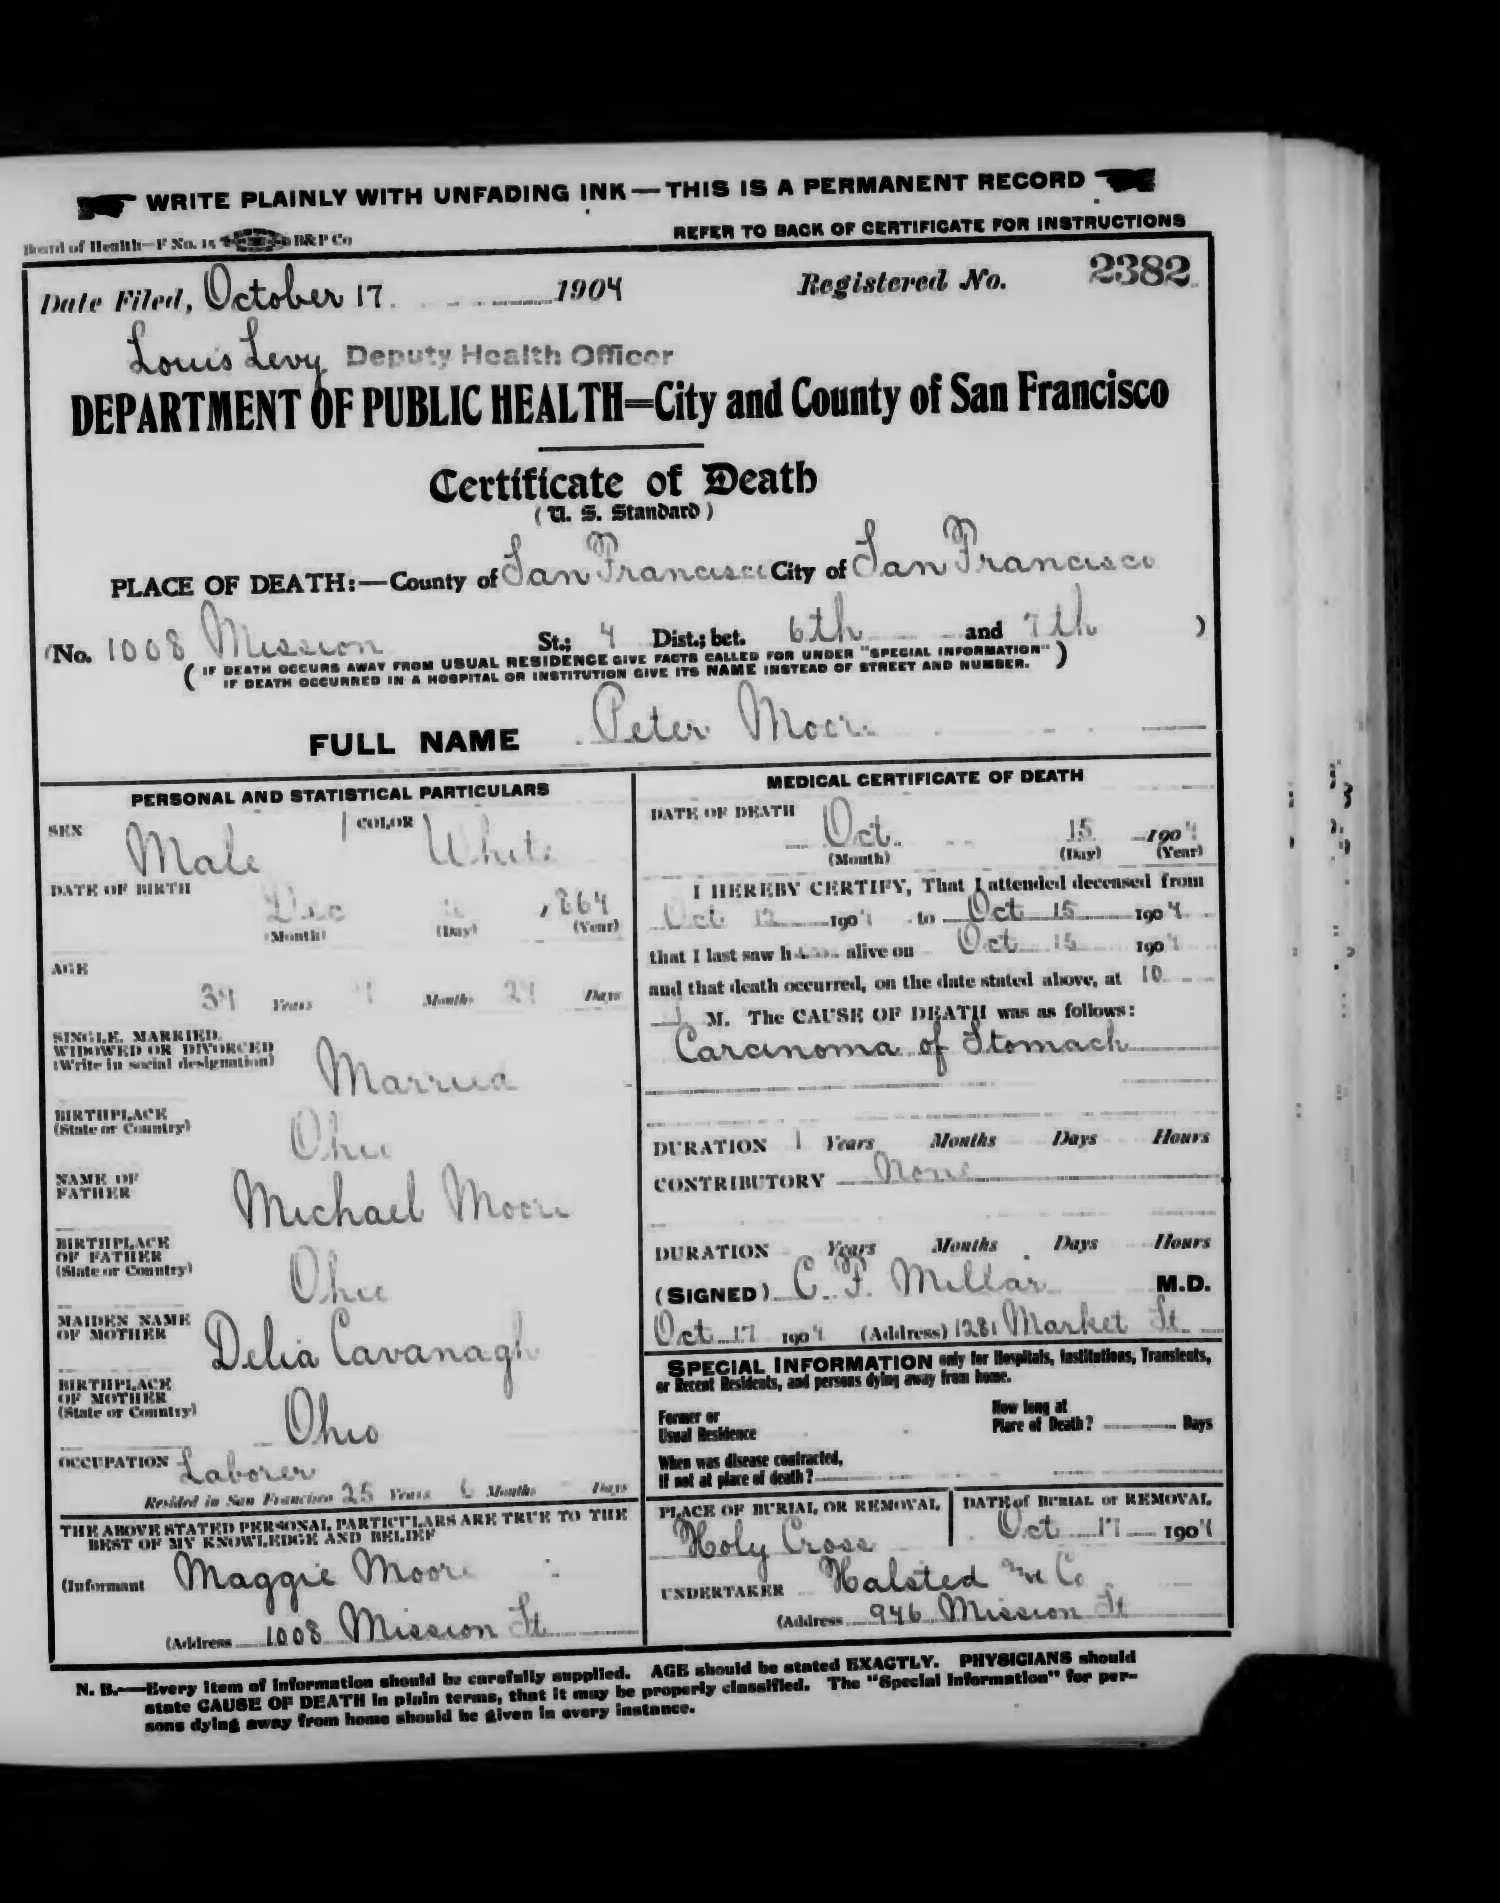 WRITE PLAINLY WITH UNFADING INK—THIS IS A PERMANENT RECORD
Board of Health—F No. 15 B&P Co
REFER TO BACK OF CERTIFICATE FOR INSTRUCTIONS
Date Filed, October 17 1904 Registered No. 2382
Louis Levy Deputy Health Officer
DEPARTMENT OF PUBLIC HEALTH—City and County of San Francisco
Certificate of Death
(U. S. Standard)
PLACE OF DEATH:—County of San Francisco City of San Francisco
(No. 1008 Mission St.; 4 Dist.; bet. 6th and 7th )
( IF DEATH OCCURS AWAY FROM USUAL RESIDENCE GIVE FACTS CALLED FOR UNDER "SPECIAL INFORMATION" )
IF DEATH OCCURRED IN A HOSPITAL OR INSTITUTION GIVE ITS NAME INSTEAD OF STREET AND NUMBER.
FULL NAME Peter Moore
PERSONAL AND STATISTICAL PARTICULARS
SEX Male COLOR White
DATE OF BIRTH
Dec 1864
(Month) (Day) (Year)
AGE
39 Years Months 24 Days
SINGLE, MARRIED,
WIDOWED OR DIVORCED
(Write in social designation)
Married
BIRTHPLACE
(State or Country)
Ohio
NAME OF
FATHER
Michael Moore
BIRTHPLACE
OF FATHER
(State or Country)
Ohio
MAIDEN NAME
OF MOTHER
Delia Cavanagh
BIRTHPLACE
OF MOTHER
(State or Country)
Ohio
OCCUPATION Laborer
Resided in San Francisco 25 Years 6 Months Days
THE ABOVE STATED PERSONAL PARTICULARS ARE TRUE TO THE
BEST OF MY KNOWLEDGE AND BELIEF
(Informant Maggie Moore
(Address 1008 Mission St
MEDICAL CERTIFICATE OF DEATH
DATE OF DEATH
Oct. 15 1904
(Month) (Day) (Year)
I HEREBY CERTIFY, That I attended deceased from
Oct 12 1904 to Oct 15 1904
that I last saw him alive on Oct 15 1904
and that death occurred, on the date stated above, at 10
M. The CAUSE OF DEATH was as follows:
Carcinoma of Stomach
DURATION 1 Years Months Days Hours
CONTRIBUTORY None
DURATION Years Months Days Hours
(SIGNED) C. F. Millar M.D.
Oct 17 1904 (Address) 1281 Market St
SPECIAL INFORMATION only for Hospitals, Institutions, Transients,
or Recent Residents, and persons dying away from home.
Former or
Usual Residence
How long at
Place of Death? Days
When was disease contracted,
If not at place of death?
PLACE OF BURIAL OR REMOVAL
Holy Cross
DATE of BURIAL or REMOVAL
Oct 17 1904
UNDERTAKER Halsted and Co
(Address 946 Mission St
N. B.—Every item of information should be carefully supplied. AGE should be stated EXACTLY. PHYSICIANS should
state CAUSE OF DEATH in plain terms, that it may be properly classified. The "Special Information" for per-
sons dying away from home should be given in every instance.